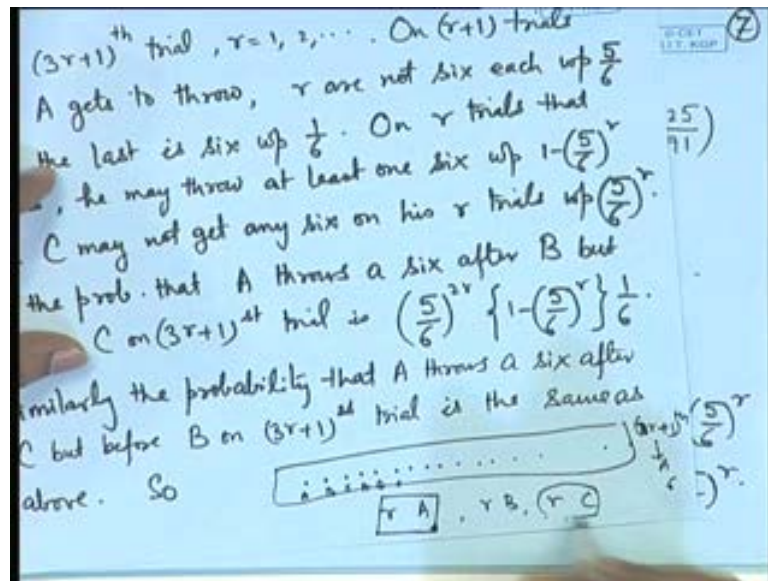 (3r+1)th trial, r = 1, 2, .... On (r+1) trials
A gets to throw, r are not six each wp 5/6
the last is six wp 1/6. On r trials that
, he may throw at least one six wp 1-(5/6)^r
C may not get any six on his r trials wp (5/6)^r.
the prob. that A throws a six after B but
C on (3r+1)st trial is (5/6)^2r {1-(5/6)^r} 1/6.
imilarly the probability that A throws a six after
C but before B on (3r+1)st trial is the same as
above. So
r A , r B, r C
7
25/91)
(3r+1)th
A
6
(5/6)^r
)^r.